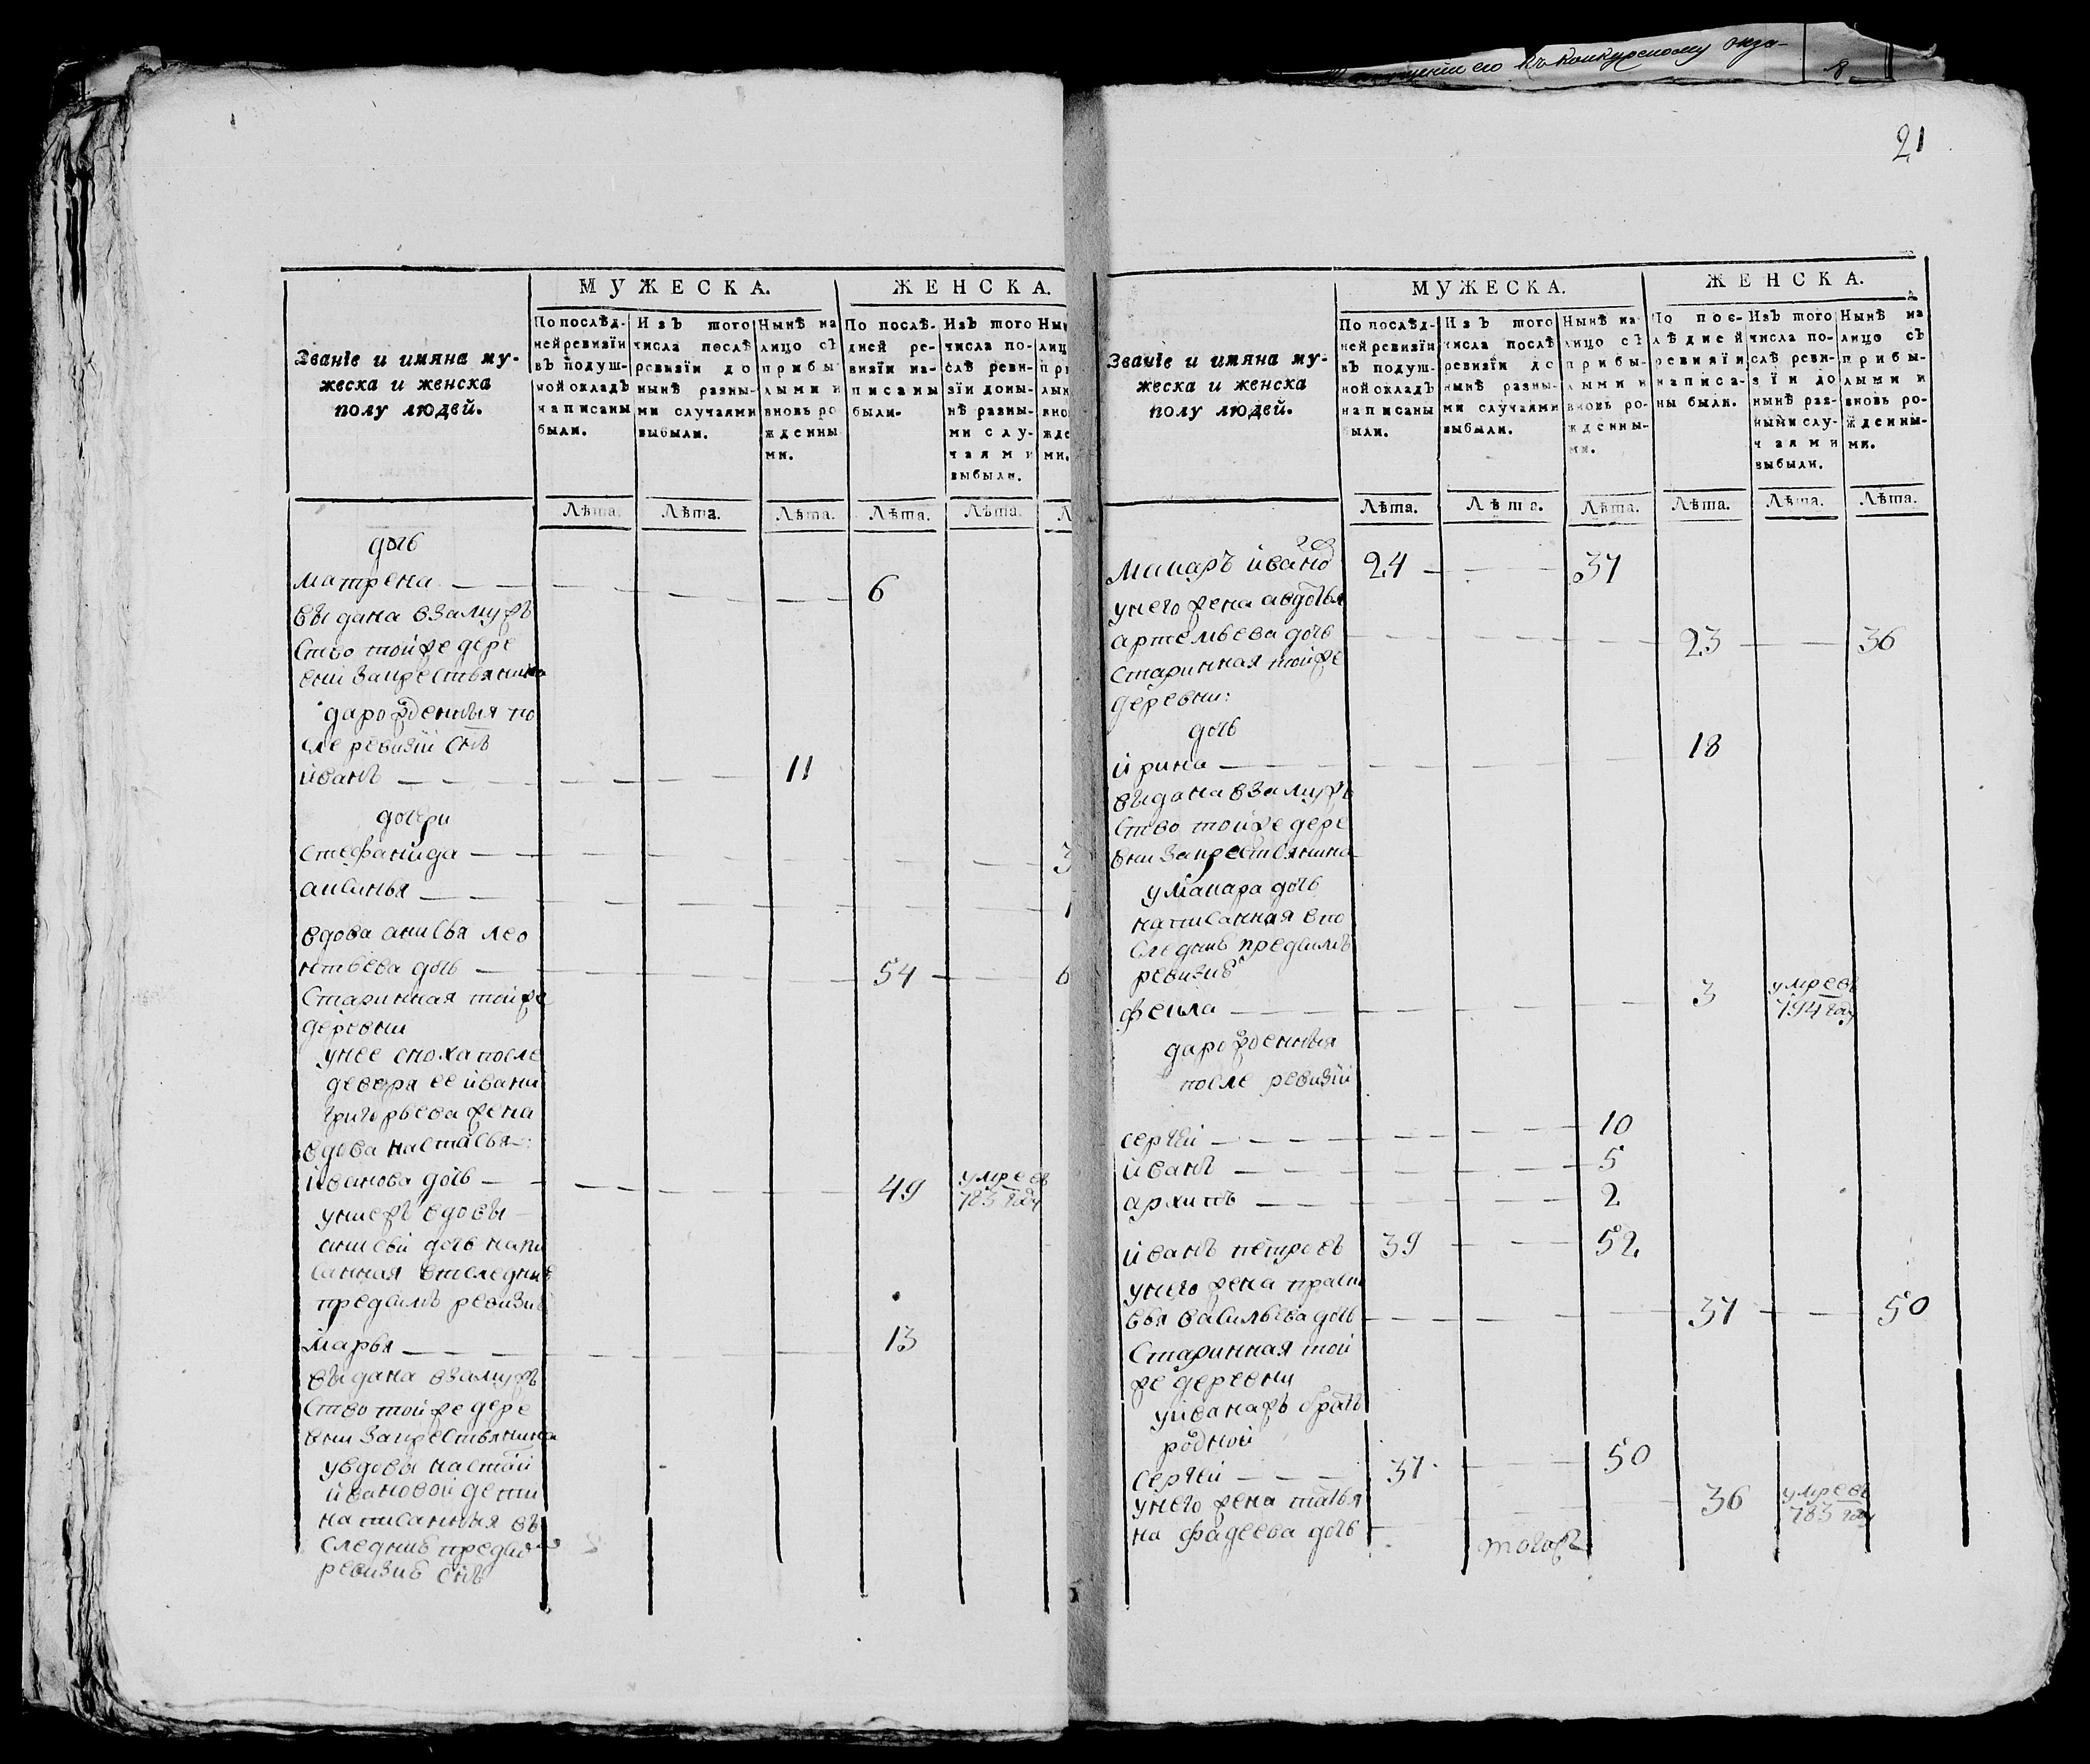 21
МУЖЕСКА.
ЖЕНСКА.
Званїе и имяна му-
жеска и женска
полу людей.
По послѣд-
ней ревизїи
въ подуш-
ной окладъ
написаны
были.
Изъ того
числа послѣ
ревизїи до
нынѣ разны-
ми случаями
выбыли.
Нынѣ на
лицо съ
прибы
лыми и
вновь ро
жденны
ми.
По послѣ-
дней ре-
визїи на-
писаны
были.
Изъ того
числа по-
слѣ реви-
зїи доны-
нѣ разны-
ми слу-
чаями
выбыли.
Лѣта.
Лѣта.
Лѣта.
Лѣта.
Лѣта.
дочь
матрена 6
выдана взамуж
ство тойже дере
вни закрестьянина
дарожденныя по
сле ревизии снъ
иванъ 11
дочери
стефанида 3
аксинья 1
вдова анисья лео
нтьева дочь 54 6
старинная тойже
деревни
унее сноха после
деверя ее ивана
григорьева жена
вдова настасья
иванова дочь 49 умре въ
783 году
униеж вдовы
анисьи дочь напи
санная впоследней
предсимъ ревизии
марья 13
выдана взамуж
ство тойже дере
вни закрестьянина
увдовы настаси
ивановой дети
написанныя въ
следней предсимъ
ревизиѣ снъ
МУЖЕСКА.
ЖЕНСКА.
Званїе и имяна му-
жеска и женска
полу людей.
По послѣд-
ней ревизїи
въ подуш-
ной окладъ
написаны
были.
Изъ того
числа послѣ
ревизїи до
нынѣ разны-
ми случаями
выбыли.
Нынѣ на
лицо съ
прибы-
лыми и
вновь ро-
жденны-
ми.
По пос-
лѣдней
ревизїи
написа-
ны были.
Изъ того
числа по-
слѣ реви-
зїи до
нынѣ раз-
ными слу-
чаями
выбыли.
Нынѣ на
лицо съ
прибы-
лыми и
вновь ро-
жденны-
ми.
Лѣта.
Лѣта.
Лѣта.
Лѣта.
Лѣта.
Лѣта.
макаръ ивано 24 37
унего жена авдотья
артемьева дочь 23 36
старинная тойже
деревни:
дочь
ирина 18
выдана взамуж
ство тойже дере
вни закрестьянина
умакара дочь
написанная впо
следней предсимъ
ревизиѣ
фекла 3 умре въ
794 году
дарожденныя
после ревизии
сергѣй 10
иванъ 5
архипъ 2
иванъ петровъ 39 52
унего жена праско
вья васильева дочь 37 50
старинная той
же деревни
уиванаж братъ
родной
сергѣй 37 50
унего жена татья 36 умре въ
783 году
на фадеева дочь
тогож